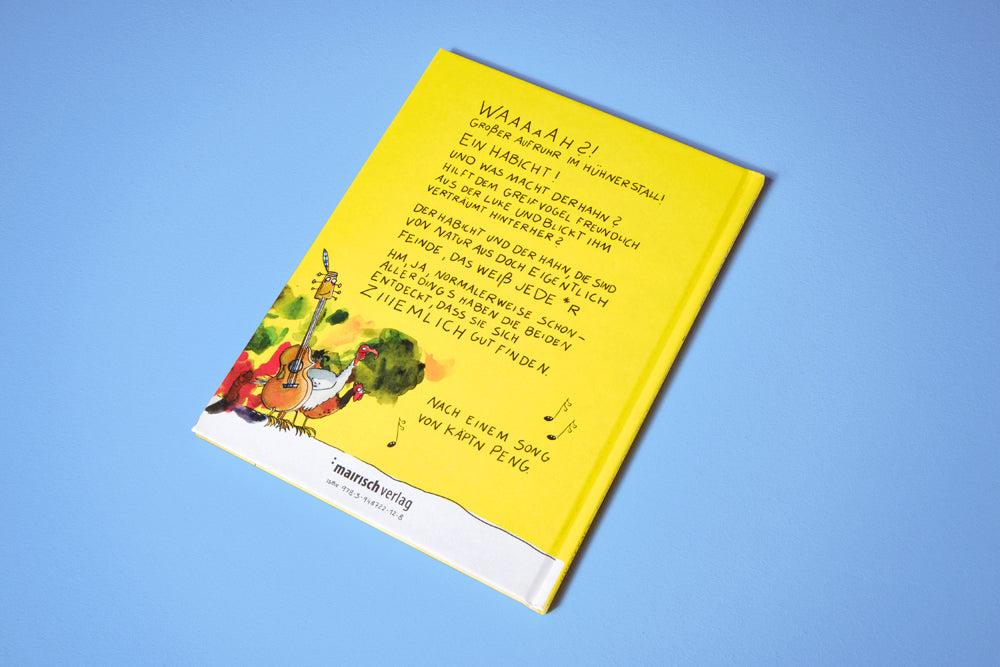 WAAAAAH?!
GROßER AUFRUHR IM HÜHNERSTALL!
EIN HABICHT!
UND WAS MACHT DER HAHN?
HILFT DEM GREIFVOGEL FREUNDLICH
AUS DER LUKE UND BLICKT IHM
VERTRÄUMT HINTERHER?
DER HABICHT UND DER HAHN, DIE SIND
VON NATUR AUS DOCH EIGENTLICH
FEINDE, DAS WEIß JEDE*R
HM, JA, NORMALERWEISE SCHON –
ALLERDINGS HABEN DIE BEIDEN
ENTDECKT, DASS SIE SICH
ZIIIEMLICH GUT FINDEN.
NACH EINEM SONG
VON KÄPTN PENG.
mairisch verlag
ISBN 978-3-948722-12-8